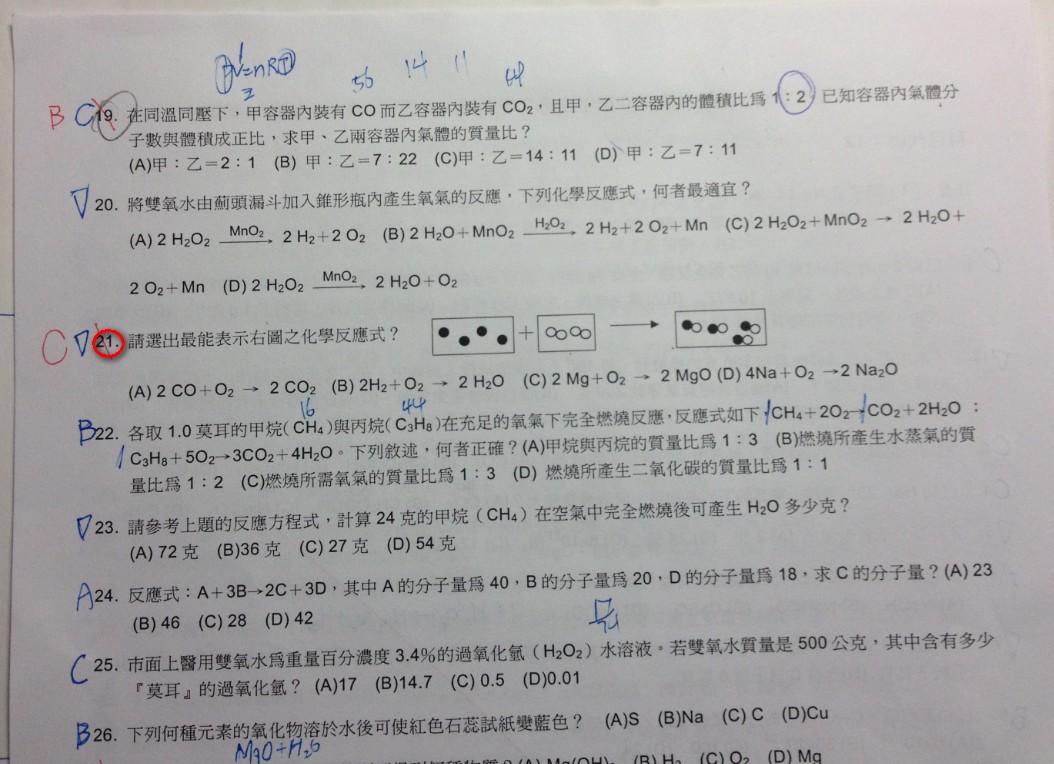 PV=nRT
56 14 11 44
B C 19. 在同溫同壓下，甲容器內裝有 CO 而乙容器內裝有 CO₂，且甲，乙二容器內的體積比為 1：2，已知容器內氣體分
子數與體積成正比，求甲、乙兩容器內氣體的質量比？
(A)甲：乙＝2：1 (B) 甲：乙＝7：22 (C)甲：乙＝14：11 (D) 甲：乙＝7：11
D 20. 將雙氧水由薊頭漏斗加入錐形瓶內產生氧氣的反應，下列化學反應式，何者最適宜？
(A) 2 H₂O₂ —MnO₂→ 2 H₂＋2 O₂ (B) 2 H₂O＋MnO₂ —H₂O₂→ 2 H₂＋2 O₂＋Mn (C) 2 H₂O₂＋MnO₂ → 2 H₂O＋
2 O₂＋Mn (D) 2 H₂O₂ —MnO₂→ 2 H₂O＋O₂
C D 21. 請選出最能表示右圖之化學反應式？ ＋ →
(A) 2 CO＋O₂ → 2 CO₂ (B) 2H₂＋O₂ → 2 H₂O (C) 2 Mg＋O₂ → 2 MgO (D) 4Na＋O₂ →2 Na₂O
16 44
B 22. 各取 1.0 莫耳的甲烷(CH₄)與丙烷(C₃H₈)在充足的氧氣下完全燃燒反應，反應式如下：CH₄＋2O₂→CO₂＋2H₂O；
C₃H₈＋5O₂→3CO₂＋4H₂O。下列敘述，何者正確？(A)甲烷與丙烷的質量比為 1：3 (B)燃燒所產生水蒸氣的質
量比為 1：2 (C)燃燒所需氧氣的質量比為 1：3 (D) 燃燒所產生二氧化碳的質量比為 1：1
D 23. 請參考上題的反應方程式，計算 24 克的甲烷（CH₄）在空氣中完全燃燒後可產生 H₂O 多少克？
(A) 72 克 (B)36 克 (C) 27 克 (D) 54 克
A 24. 反應式：A＋3B→2C＋3D，其中 A 的分子量為 40，B 的分子量為 20，D 的分子量為 18，求 C 的分子量？(A) 23
(B) 46 (C) 28 (D) 42
C 25. 市面上醫用雙氧水為重量百分濃度 3.4％的過氧化氫（H₂O₂）水溶液。若雙氧水質量是 500 公克，其中含有多少
『莫耳』的過氧化氫？ (A)17 (B)14.7 (C) 0.5 (D)0.01
B 26. 下列何種元素的氧化物溶於水後可使紅色石蕊試紙變藍色？ (A)S (B)Na (C) C (D)Cu
MgO＋H₂O
(A) Mg(OH)₂ (B) H₂ (C) O₂ (D) Mg